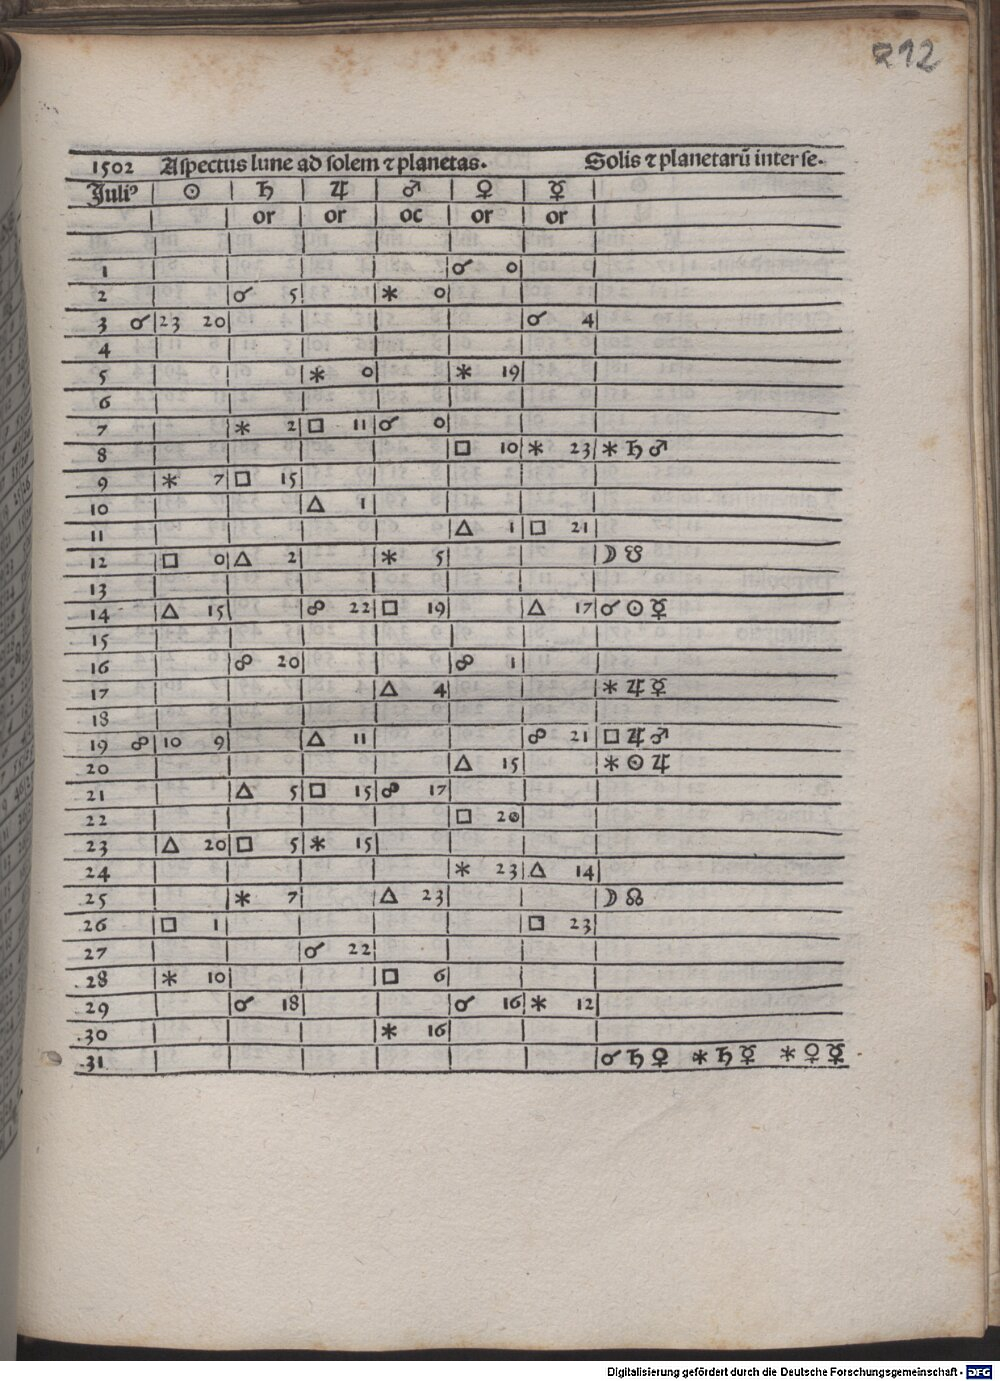 212
1502 Aspectus lune ad solem ⁊ planetas. Solis ⁊ planetarū inter se.
Juliꝰ | ☉ | ♄ | ♃ | ♂ | ♀ | ☿ |
| | or | or | oc | or | or |
1 | | | | | ☌ 0 | |
2 | | ☌ 5 | | ⚹ 0 | | |
3 ☌ | 23 20 | | | | | ☌ 4 |
4 | | | | | | |
5 | | | ⚹ 0 | | ⚹ 19 | |
6 | | | | | | |
7 | | ⚹ 2 | □ 11 | ☌ 0 | | |
8 | | | | | □ 10 | ⚹ 23 | ⚹ ♄ ♂
9 | ⚹ 7 | □ 15 | | | | |
10 | | | △ 1 | | | |
11 | | | | | △ 1 | □ 21 |
12 | □ 0 | △ 2 | | ⚹ 5 | | | ☽ ☋
13 | | | | | | |
14 | △ 15 | | ☍ 22 | □ 19 | | △ 17 | ☌ ☉ ☿
15 | | | | | | |
16 | | ☍ 20 | | | ☍ 1 | |
17 | | | | △ 4 | | | ⚹ ♃ ☿
18 | | | | | | |
19 ☍ | 10 9 | | △ 11 | | | ☍ 21 | □ ♃ ♂
20 | | | | | △ 15 | | ⚹ ☉ ♃
21 | | △ 5 | □ 15 | ☍ 17 | | |
22 | | | | | □ 20 | |
23 | △ 20 | □ 5 | ⚹ 15 | | | |
24 | | | | | ⚹ 23 | △ 14 |
25 | | ⚹ 7 | | △ 23 | | | ☽ ☊
26 | □ 1 | | | | | □ 23 |
27 | | | ☌ 22 | | | |
28 | ⚹ 10 | | | □ 6 | | |
29 | | ☌ 18 | | | ☌ 16 | ⚹ 12 |
30 | | | | ⚹ 16 | | |
31 | | | | | | | ☌ ♄ ♀ ⚹ ♄ ☿ ⚹ ♀ ☿
Digitalisierung gefördert durch die Deutsche Forschungsgemeinschaft - DFG